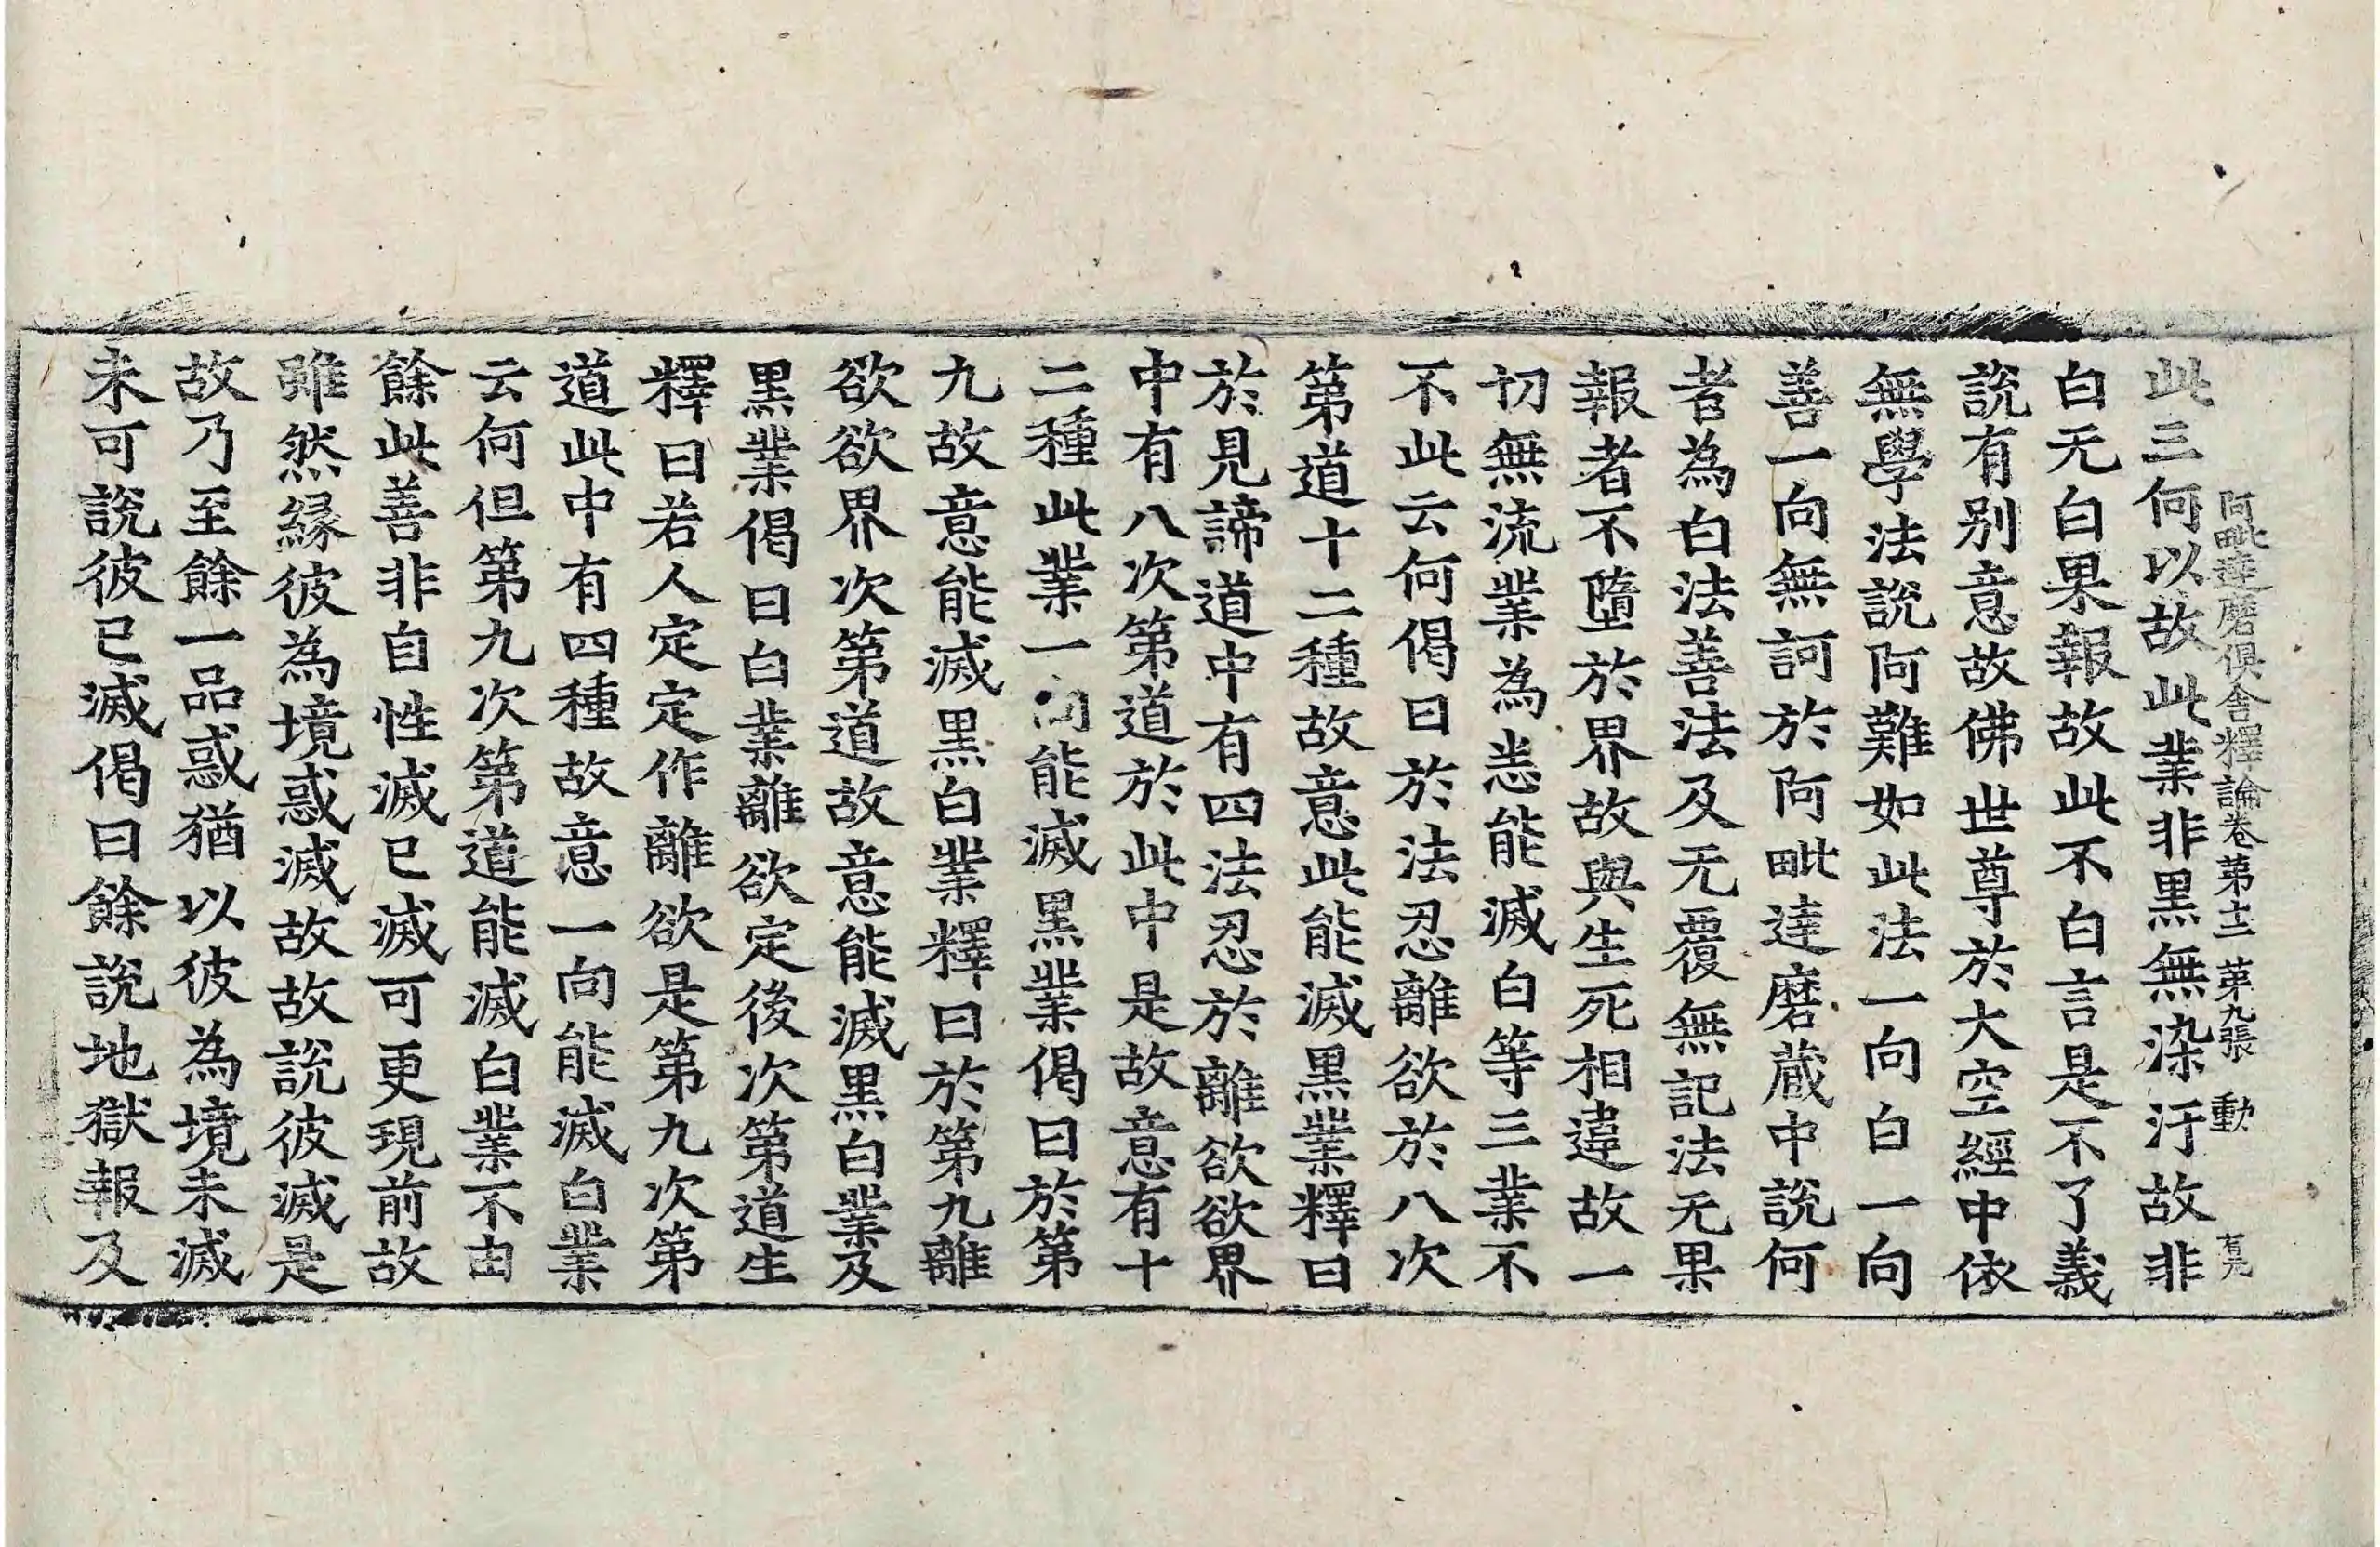 阿毗達磨俱舍釋論卷第十二 第九張 動
此三何以故此業非黑無染汙故非
白无白果報故此不白言是不了義
說有別意故佛世尊於大空經中依
無學法說阿難如此法一向白一向
善一向無訶於阿毗達磨藏中說何
者為白法善法及无覆無記法无果
報者不墮於界故與生死相違故一
切無流業為悉能滅白等三業不
不此云何偈曰於法忍離欲於八次
第道十二種故意此能滅黑業釋曰
於見諦道中有四法忍於離欲欲界
中有八次第道於此中是故意有十
二種此業一向能滅黑業偈曰於第
九故意能滅黑白業釋曰於第九離
欲欲界次第道故意能滅黑白業及
黑業偈曰白業離欲定後次第道生
釋曰若人定定作離欲是第九次第
道此中有四種故意一向能滅白業
云何但第九次第道能滅白業不由
餘此善非自性滅已滅可更現前故
雖然緣彼為境惑滅故故說彼滅是
故乃至餘一品惑猶以彼為境未滅
未可說彼已滅偈曰餘說地獄報及